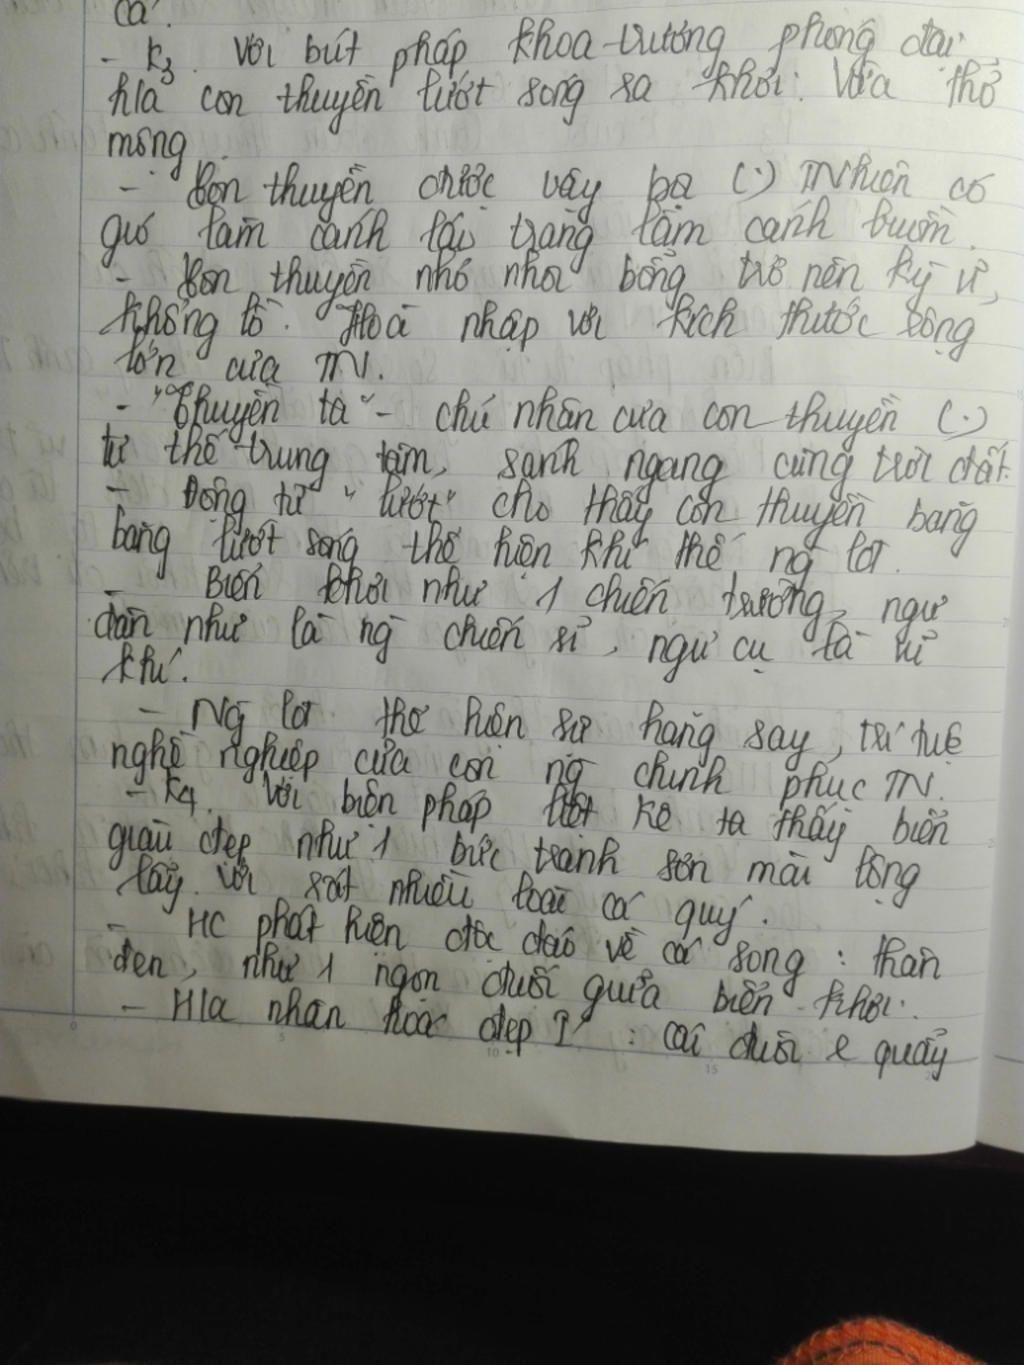 cá.
- K3. Với bút pháp khoa trương phóng đại
h/a con thuyền lướt sóng ra khơi. Vừa thơ
mộng.
- Con thuyền được vây bọc (.) TNhiên có
gió làm cánh lái trăng làm cánh buồm.
- Con thuyền nhỏ nhoi bỗng trở nên kỳ vĩ,
khổng lồ. Hoà nhập với kích thước rộng
lớn của TN.
- "Thuyền ta" - chủ nhân của con thuyền (.)
tư thế trung tâm, sánh ngang cùng trời đất.
- Động từ "lướt" cho thấy con thuyền băng
băng lướt sóng thể hiện khí thế ng lđ.
- Biển khơi như 1 chiến trường, ngư
dân như là ng chiến sĩ, ngư cụ là vũ
khí.
- Ng lđ thể hiện sự hăng say, trí tuệ
nghề nghiệp của con ng chinh phục TN.
- K4. Với biện pháp liệt kê ta thấy biển
giàu đẹp như 1 bức tranh sơn mài lộng
lẫy với rất nhiều loài cá quý.
- HC phát hiện độc đáo về cá song: thân
đen, như 1 ngọn đuốc giữa biển khơi.
- H/a nhân hoá đẹp : cái đuôi e quẫy